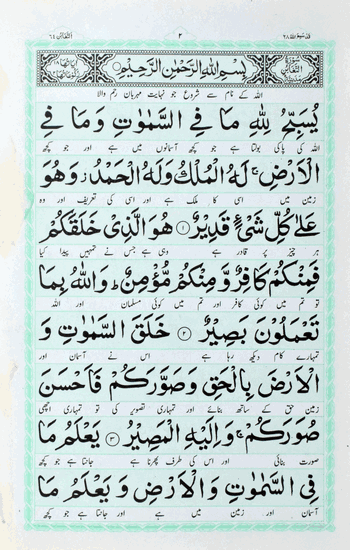 قد سمع الله ٢٨ ٢ التغابن ٦٤
سورة التغابن بِسْمِ اللهِ الرَّحْمٰنِ الرَّحِيْمِ
اللہ کے نام سے شروع جو نہایت مہربان رحم والا
يُسَبِّحُ لِلّٰهِ مَا فِي السَّمٰوٰتِ وَمَا فِي
اللہ کی پاکی بولتا ہے جو کچھ آسمانوں میں ہے اور جو کچھ
الْاَرْضِ ۚ لَهُ الْمُلْكُ وَلَهُ الْحَمْدُ ؗ وَهُوَ
زمین میں اسی کا ملک ہے اور اسی کی تعریف اور وہ
عَلٰى كُلِّ شَيْءٍ قَدِيْرٌ ۝١ هُوَ الَّذِيْ خَلَقَكُمْ
ہر چیز پر قادر ہے وہی ہے جس نے تمہیں پیدا کیا
فَمِنْكُمْ كَافِرٌ وَّمِنْكُمْ مُّؤْمِنٌ ؕ وَاللهُ بِمَا
تو تم میں کوئی کافر اور تم میں کوئی مسلمان اور اللہ
تَعْمَلُوْنَ بَصِيْرٌ ۝٢ خَلَقَ السَّمٰوٰتِ وَ
تمہارے کام دیکھ رہا ہے اس نے آسمان اور
الْاَرْضَ بِالْحَقِّ وَصَوَّرَكُمْ فَاَحْسَنَ
زمین حق کے ساتھ بنائے اور تمہاری تصویر کی تو تمہاری اچھی
صُوَرَكُمْ ۚ وَاِلَيْهِ الْمَصِيْرُ ۝٣ يَعْلَمُ مَا
صورت بنائی اور اسی کی طرف پھرنا ہے جانتا ہے جو کچھ
فِي السَّمٰوٰتِ وَالْاَرْضِ وَيَعْلَمُ مَا
آسمان اور زمین میں ہے اور جانتا ہے جو کچھ